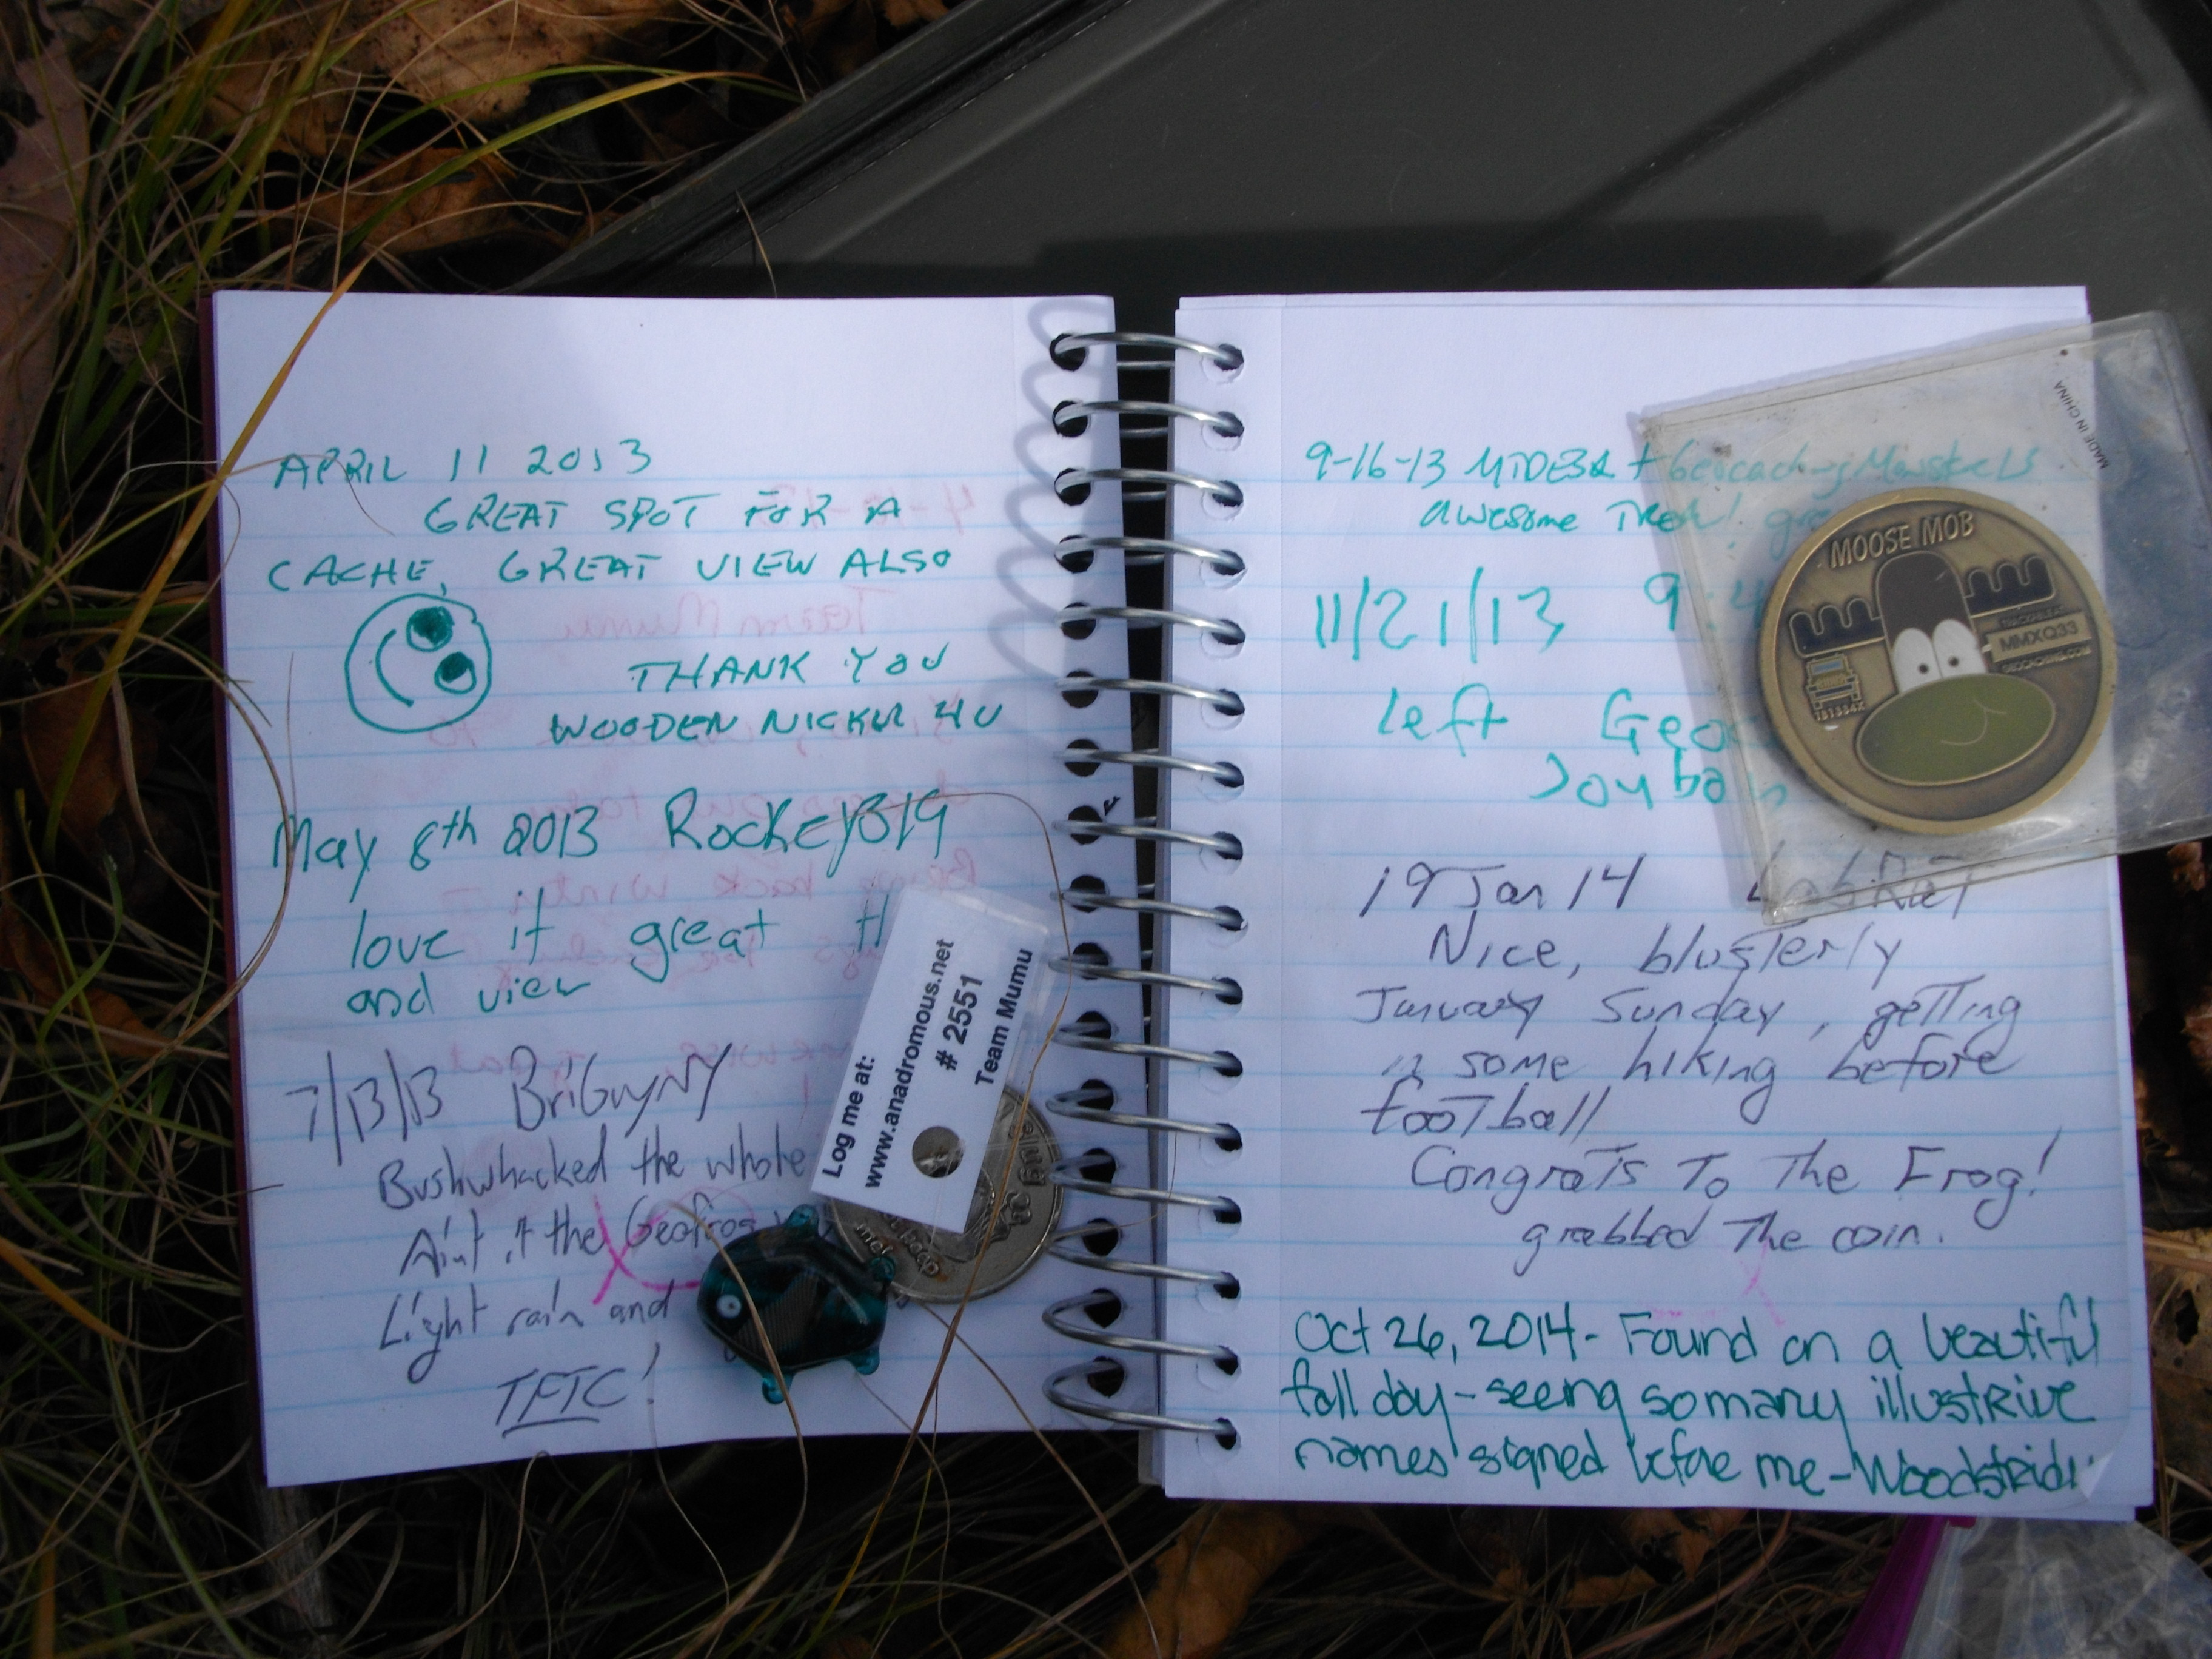 APRIL 11 2013
GREAT SPOT FOR A
CACHE, GREAT VIEW ALSO
THANK YOU
WOODEN NICKLE 4U
May 8th 2013 Rockey1319
love it great
and view
7/13/13 BriGuyNY
Bushwhacked the whole
Aint it the Geofrog
Light rain and
TFTC!
Log me at:
www.anadromous.net
# 2551
Team Mumu
9-16-13 + Geocaching
awesome Trek!
11/21/13 9:4
left Geo
19 Jan 14 LabRat
Nice, blusterly
January Sunday, getting
in some hiking before
football
Congrats To The Frog!
grabbed The coin.
Oct 26, 2014 - Found on a beautiful
fall day - seeing so many illustrive
names signed before me - Woodstrider
MADE IN CHINA
MOOSE MOB
TRACKABLE AT
MMXQ33
GEOCACHING.COM